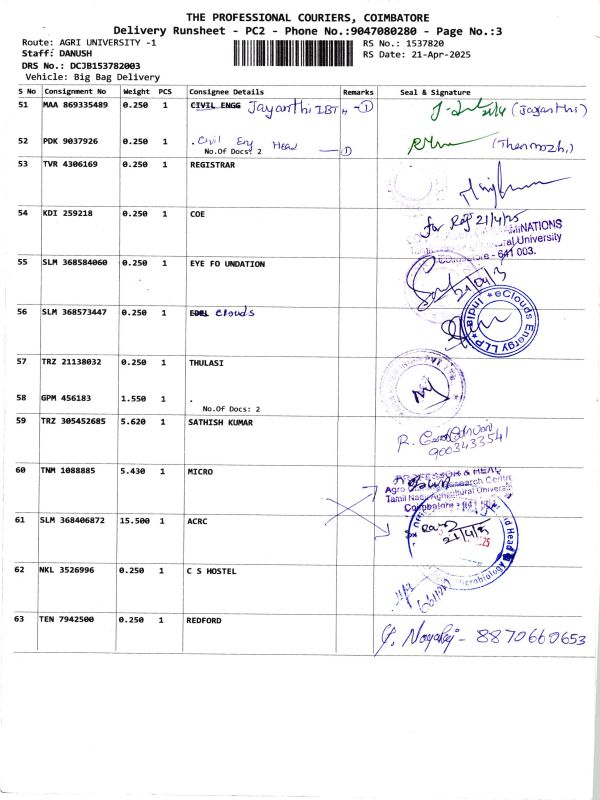 THE PROFESSIONAL COURIERS, COIMBATORE
Delivery Runsheet - PC2 - Phone No.:9047080280 - Page No.:3
Route: AGRI UNIVERSITY -1 RS No.: 1537820
Staff: DANUSH RS Date: 21-Apr-2025
DRS No.: DCJB153782003
Vehicle: Big Bag Delivery
S No Consignment No Weight PCS Consignee Details Remarks Seal & Signature
51 MAA 869335489 0.250 1 CIVIL ENGG Jayanthi IBT H - ① 21/4 (Jayanthi)
52 PDK 9037926 0.250 1 . Civil Eng Head — ① (Thenmozhi)
No.Of Docs: 2
53 TVR 4306169 0.250 1 REGISTRAR
54 KDI 259218 0.250 1 COE for 21/4/25
MINATIONS
University
Coimbatore - 641 003.
55 SLM 368584060 0.250 1 EYE FO UNDATION 21/04/25
56 SLM 368573447 0.250 1 clouds
eClouds Energy LLP * India *
57 TRZ 21138032 0.250 1 THULASI
PVT LTD
58 GPM 456183 1.550 1 .
No.Of Docs: 2
59 TRZ 305452685 5.620 1 SATHISH KUMAR R.
9003433541
60 TNM 1088885 5.430 1 MICRO
PROFESSOR & HEAD
Agro Research Centre
Tamil Nadu Agricultural University
Coimbatore - 641 003
61 SLM 368406872 15.500 1 ACRC
21/4/25
and Head
Microbiology
62 NKL 3526996 0.250 1 C S HOSTEL
63 TEN 7942500 0.250 1 REDFORD
8870660653